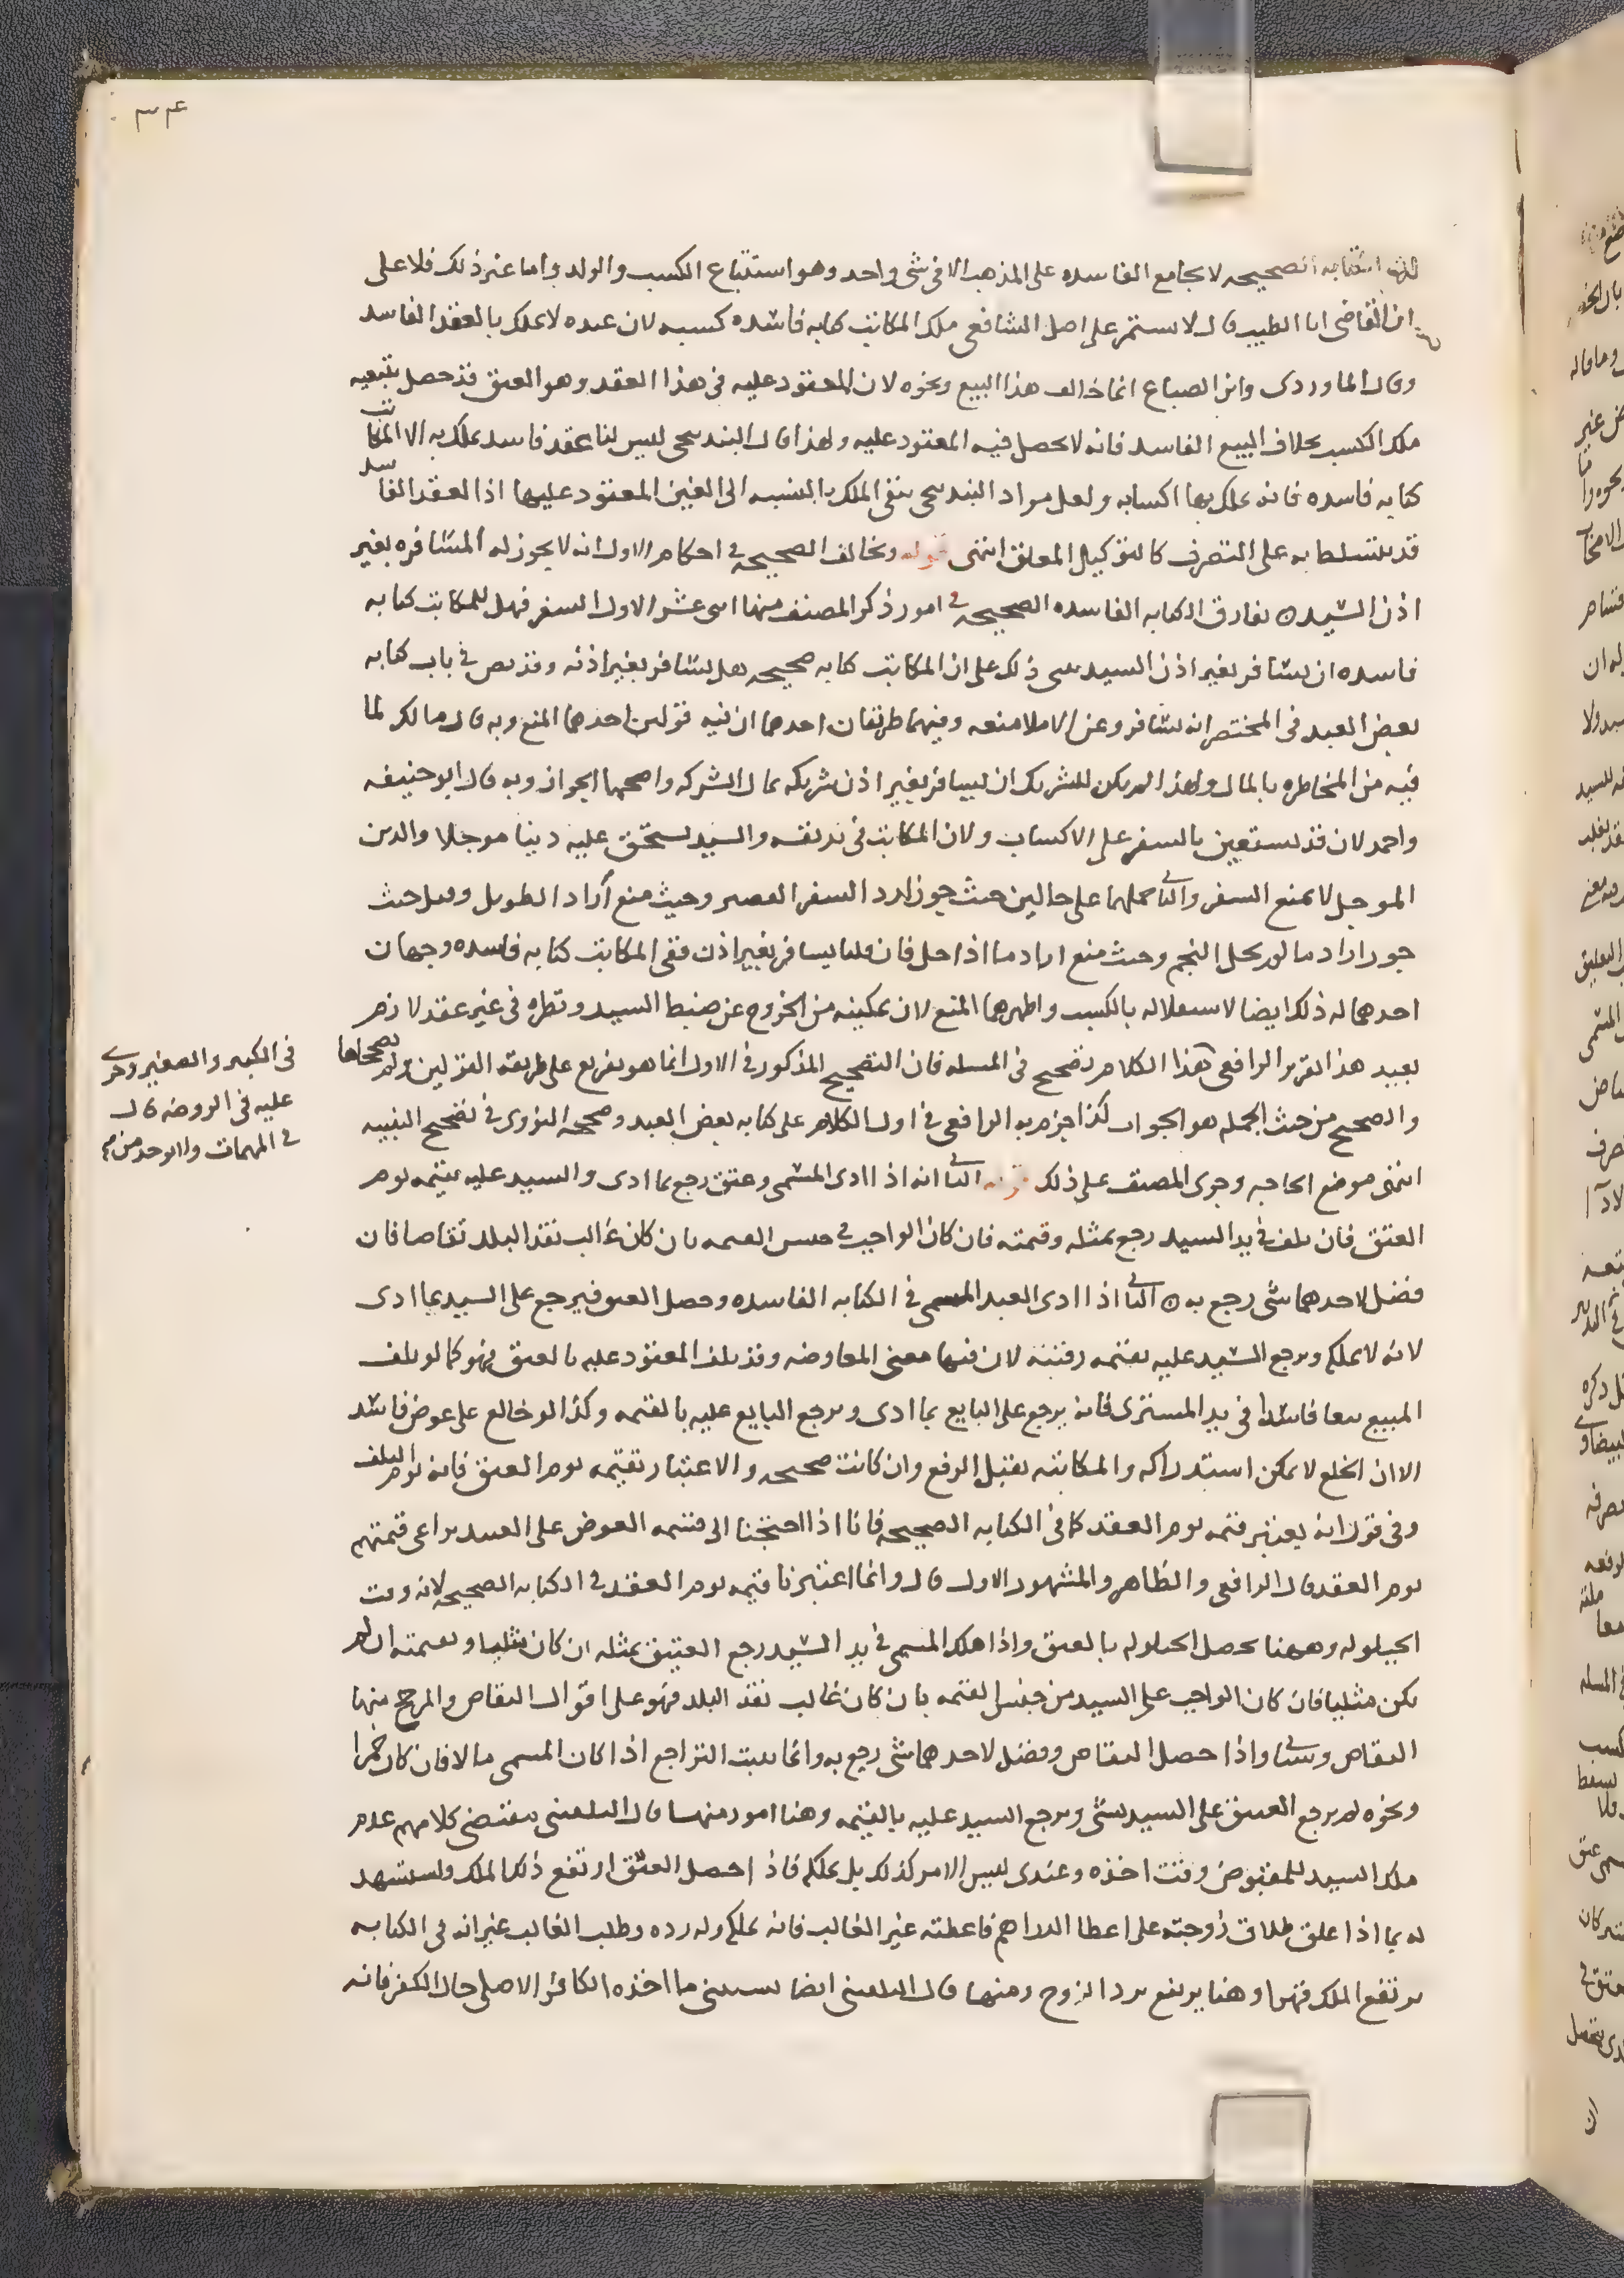 ٣٣٤
الصحيحه لا تجامع الفاسده على المذهب الا في شي واحد وهو استتباع الكسب والولد واما غير ذلك فلا على
ان القاضى ابا الطيب قال لا يستمر على اصل الشافعي ملك المكاتب كتابه فاسده كسبه لان عبده لا يملك بالعقد الفاسد
وقال الماوردى وابن الصباغ انما خالف هذا البيع ونحوه لان المعقود عليه في هذا العقد وهو العتق قد حصل بتبعيه
ملك الكسب بخلاف البيع الفاسد فانه لا يحصل فيه المعقود عليه ولهذا قال البندنيجي ليس لنا عقد فاسد يملك به الا المكاتب
كتابه فاسده فانه يملك بها اكسابه ولعل مراد البندنيجي بنفي الملك بالنسبه الى العين المعقود عليها اذ العقد الفاسد
قد يتسلط به على التصرف كالتوكيل المعلق انتهى قوله ويخالف الصحيح في احكام الاول انه لا يجوز له المسافره بغير
اذن السيد ن يفارق الكتابه الفاسده الصحيحه في امور ذكر المصنف منها اثنى عشر الاول السفر فهل للمكاتب كتابه
فاسده ان يسافر بغير اذن السيد يبنى ذلك على ان المكاتب كتابه صحيحه هل يسافر بغير اذنه وقد نص في باب كتابه
بعض العبد في المختصر انه يسافر وعن الاملا منعه وفيهما طريقان احدهما ان فيه قولين احدهما المنع وبه قال مالك لما
فيه من المخاطره بالمال ولهذا لم يكن للشريك ان يسافر بغير اذن شريكه بمال الشركه واصحهما الجواز وبه قال ابو حنيفه
واحمد لان قد يستعين بالسفر على الاكساب ولان المكاتب في يد نفسه والسيد يستحق عليه دينا موجلا والدين
الموجل لا يمنع السفر والثاني حملهما على حالين حيث جوز اراد السفر القصير وحيث منع اراد الطويل وقيل حيث
جوز اراد ما لم يحل النجم وحيث منع اراد ما اذا حل فان قلنا يسافر بغير اذن ففي المكاتب كتابه فاسده وجهان
احدهما له ذلك ايضا لاستقلاله بالكسب واظهرهما المنع لان تمكينه من الخروج عن ضبط السيد ونظره في غير عقد لازم
بعيد هذا تقرير الرافعي هذا الكلام تصحيح في المسله فان التصحيح المذكور في الاول انما هو تفريع على طريقه القولين ولم يصححاها
والصحيح من حيث الجمله هو الجواز كذا جزم به الرافعي في اول الكلام على كتابه بعض العبد وصححه النووى في تصحيح التنبيه
انتهى موضع الحاجه وجرى المصنف على ذلك قوله الثاني انه اذا ادى المسمى وعتق رجع بما ادى والسيد عليه بقيمته يوم
العتق فان تلف في يد السيد رجع بمثله وقيمته فان كان الواجب في جنس القيمه بان كان غالب نقد البلد تقاصا فان
فضل لاحدهما شي رجع به ن الثاني اذا ادى العبد المسمى في الكتابه الفاسده وحصل العتق فيرجع على السيد بما ادى
لانه لا يملكه ويرجع السيد عليه بقيمه رقبته لان فيها معنى المعاوضه وقد تلف المعقود عليه بالعتق فهو كما لو تلف
المبيع بيعا فاسدا في يد المشترى فانه يرجع على البايع بما ادى ويرجع البايع عليه بالقيمه وكذا لو خالع على عوض فاسد
الا ان الخلع لا يمكن استدراكه والمكاتبه تقبل الرفع وان كانت صحيحه والاعتبار بقيمه يوم العتق فانه يوم التلف
وفي قول انه يعتبر قيمه يوم العقد كما في الكتابه الصحيحه فانا اذا احتجنا الى قيمه العوض على العبيد يراعى قيمتهم
يوم العقد قال الرافعي والظاهر والمشهور الاول قال وانما اعتبرنا قيمه يوم العقد في الكتابه الصحيحه لانه وقت
الحيلوله وههنا يحصل الحيلوله بالعتق واذا هلك المسمى في يد السيد رجع العتيق بمثله ان كان مثليا وبقيمته ان لم
يكن مثليا فان كان الواجب على السيد من جنس القيمه بان كان غالب نقد البلد فهو على اقوال التقاص والمرجح منها
التقاص وسياتي واذا حصل التقاص وفضل لاحدهما شي رجع به وانما يثبت التراجع اذا كان المسمى مالا فان كان خمرا
ونحوه لم يرجع العتيق على السيد بشي ويرجع السيد عليه بالقيمه وهنا امور منها قال البلقيني مقتضى كلامهم عدم
ملك السيد للمقبوض وقت اخذه وعندى ليس الامر كذلك بل يملكه فاذا حصل العتق ارتفع ذلك الملك وليستشهد
له بما اذا علق طلاق زوجته على اعطا الدراهم فاعطته غير الغالب فانه يملكه وله رده وطلب الغالب غير انه في الكتابه
يرتفع الملك قهرا وهنا يرتفع برد الزوج ومنها قال البلقيني ايضا يستثنى ما اخذه الكافر الاصلي حال الكفر فانه
في الكبير والصغير وجرى
عليه في الروضه قال
في المهمات والاوحد من